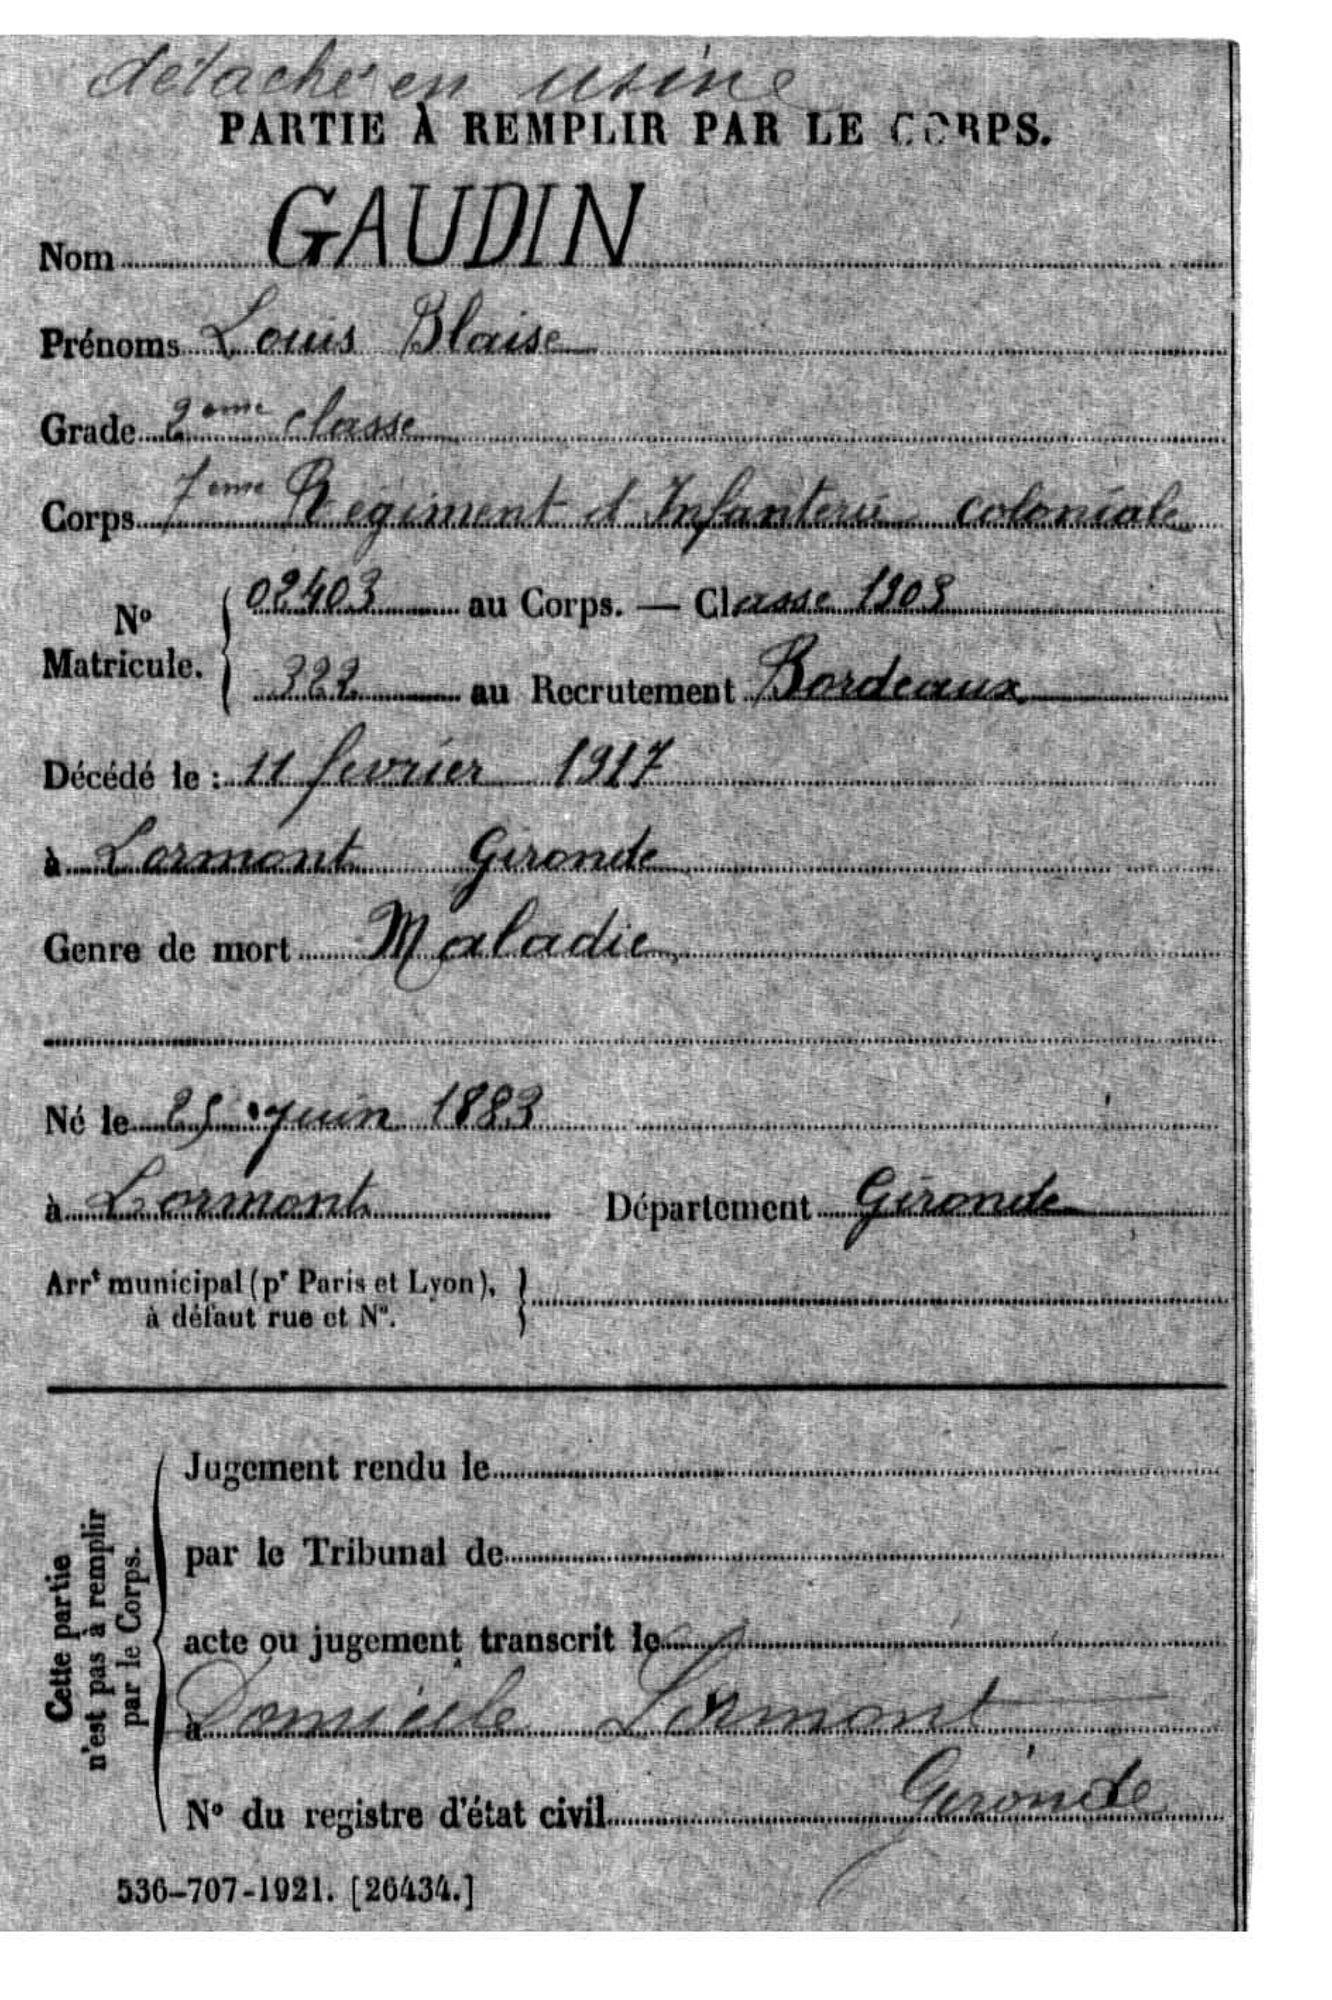 détaché en usine
PARTIE À REMPLIR PAR LE CORPS.
Nom GAUDIN
Prénoms Louis Blaise
Grade 2eme classe
Corps 7eme Régiment d'Infanterie coloniale
No Matricule. { 02403 au Corps. — Classe 1903
322 au Recrutement Bordeaux
Décédé le : 11 fevrier 1917
à Lormont Gironde
Genre de mort Maladie
Né le 25 Juin 1883
à Lormont Département Gironde
Arrt municipal (pr Paris et Lyon), }
à défaut rue et No.
Cette partie
n'est pas à remplir
par le Corps.
Jugement rendu le
par le Tribunal de
acte ou jugement transcrit le
à Domicile Lormont
Gironde
No du registre d'état civil
536-707-1921. [26434.]